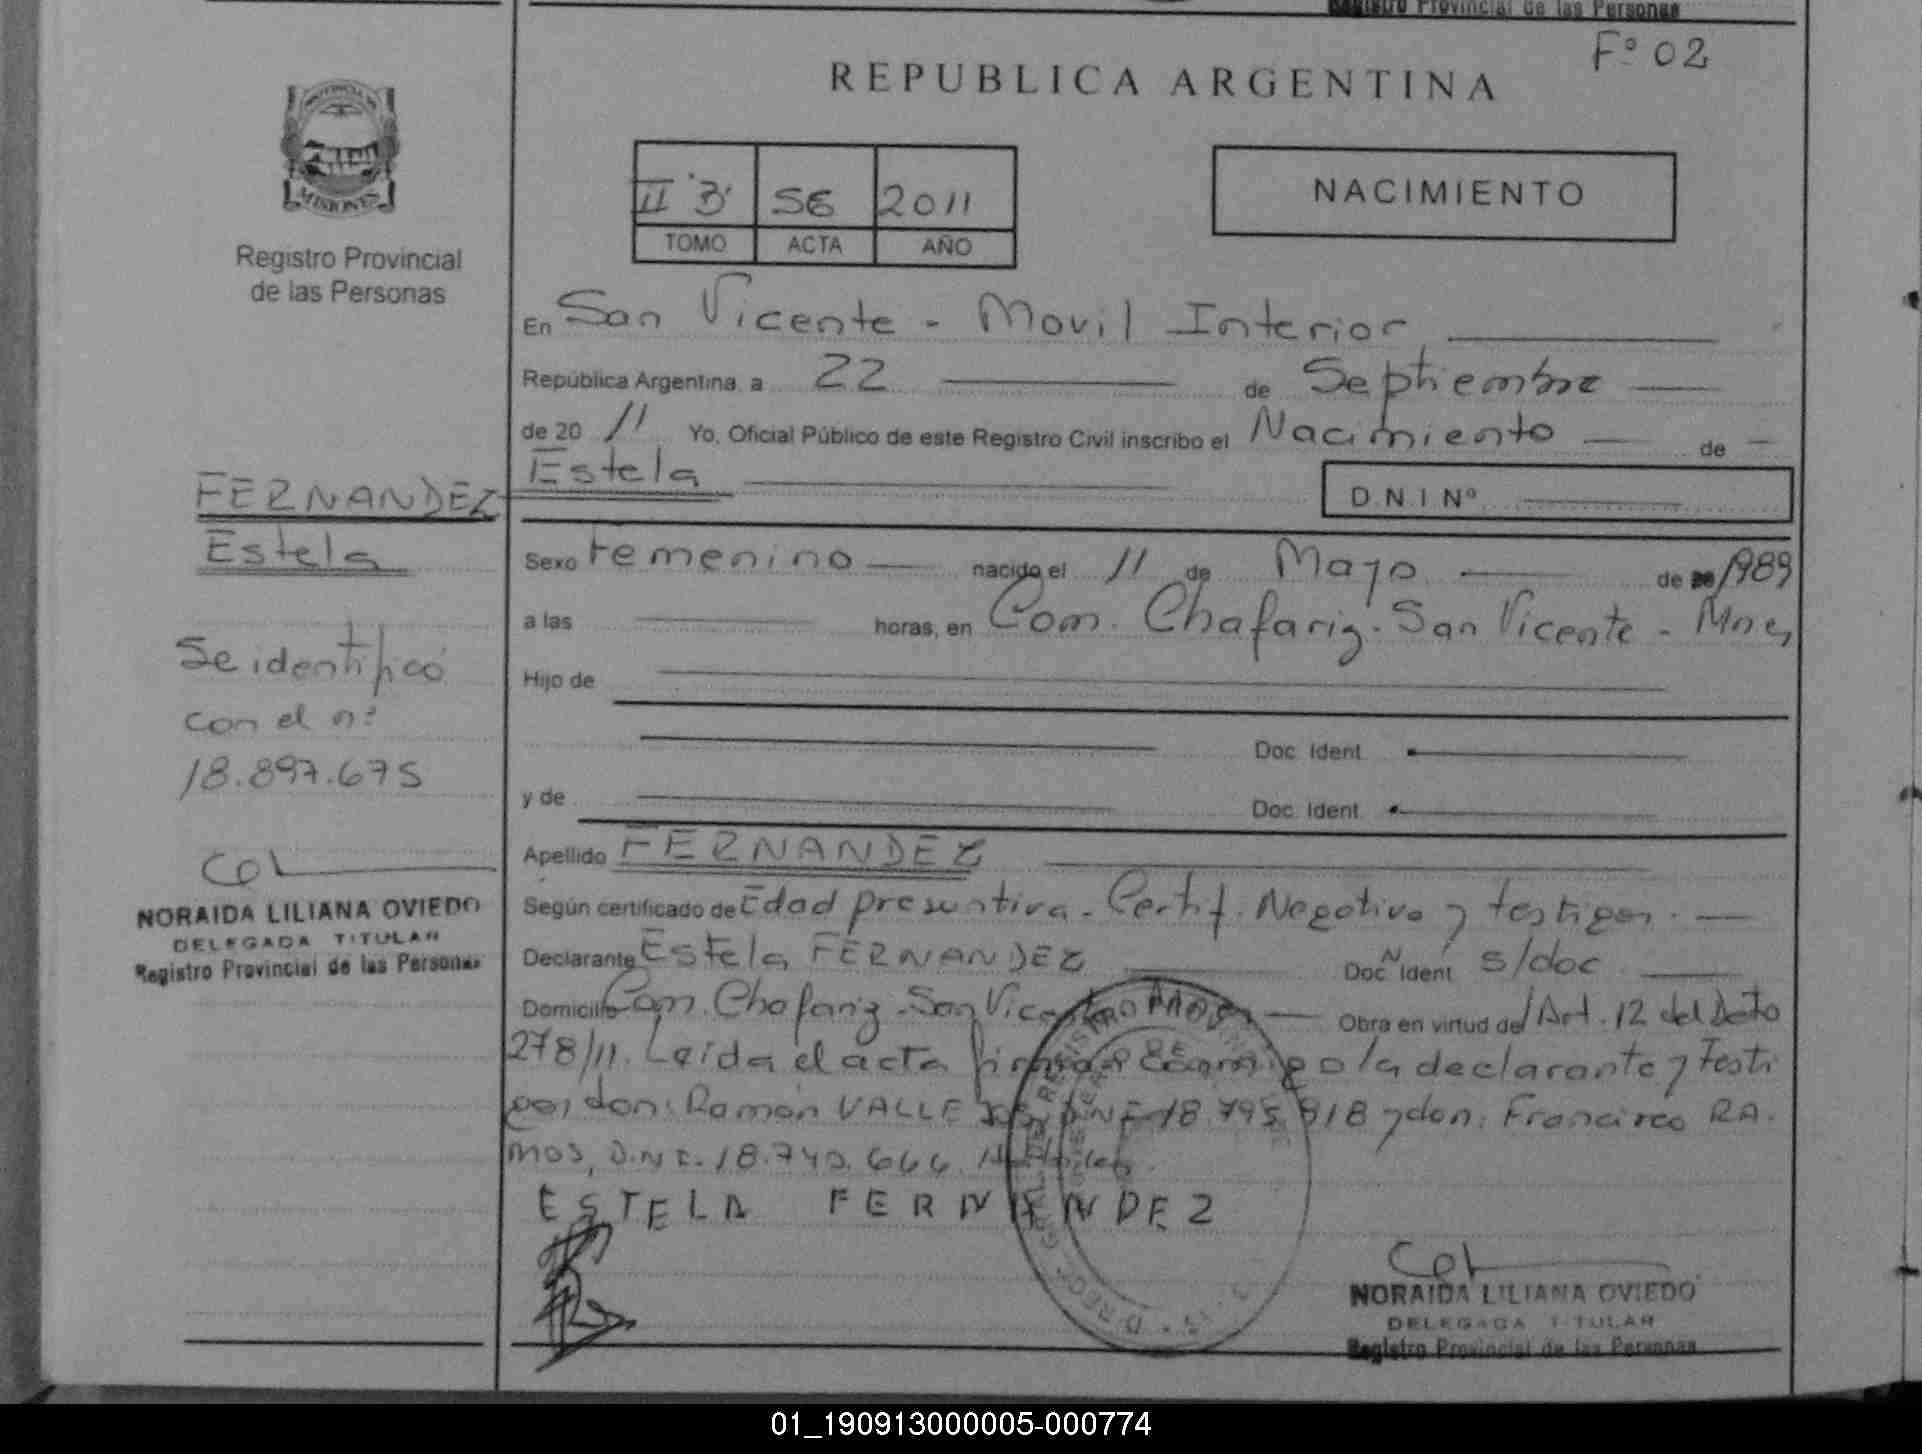 Registro Provincial de las Personas
Fº 02
REPUBLICA ARGENTINA
PROVINCIA DE
MISIONES
Registro Provincial
de las Personas
II "B" 56 2011
TOMO ACTA AÑO
NACIMIENTO
En San Vicente - Movil Interior
República Argentina, a 22 de Septiembre
de 20 11 Yo, Oficial Público de este Registro Civil inscribo el Nacimiento de
Estela
D.N.I Nº
FERNANDEZ
Estela
Se identificó
con el nº
18.897.675
NORAIDA LILIANA OVIEDO
DELEGADA TITULAR
Registro Provincial de las Personas
Sexo Femenino nacido el 11 de Mayo de 1989
a las horas, en Com. Chafariz - San Vicente - Mnes
Hijo de
Doc. Ident.
y de Doc. Ident.
Apellido FERNANDEZ
Según certificado de Edad presuntiva - Certif. Negativo y testigos.
Declarante Estela FERNANDEZ Doc Ident. s/doc
Domicilio Com. Chafariz - San Vicente Obra en virtud del Art. 12 del Dcto
278/11. Leída el acta firman conmigo la declarante y Testi
gos, don: Ramón VALLE JOS, D.N.I. 18.795.918 y don: Francisco RA.
MOS, D.N.I. 18.740.666.
ESTELA FERNANDEZ
NORAIDA LILIANA OVIEDO
DELEGADA TITULAR
Registro Provincial de las Personas
01_190913000005-000774